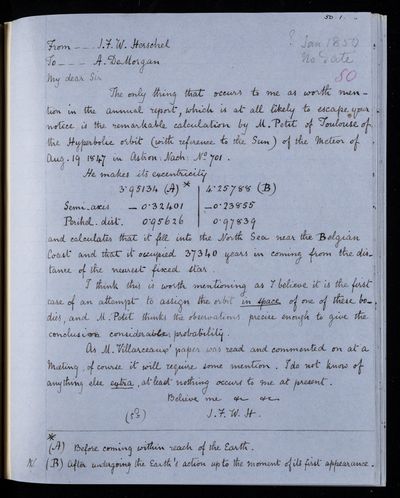 50.1.
From --- J.F.W. Herschel
? Jan 1850
To --- A. DeMorgan
No Date
50
My dear Sir
The only thing that occurs to me as worth men-
tion in the annual report, which is at all likely to escape your
notice is the remarkable calculation by M. Petit of Toulouse of
the Hyperbolic orbit (with reference to the Sun) of the Meteor of
Aug. 19 1847 in Astron: Nach: No 701.
He makes its excentricity
3.95134 (A) * | 4.25788 (B)
Semi-axis - 0.32401 | - 0.23855
Perihel. dist. 0.95626 | 0.97839
and calculates that it fell into the North Sea near the Belgian
Coast and that it occupied 37340 years in coming from the dis-
tance of the nearest fixed star.
I think this is worth mentioning as I believe it is the first
case of an attempt to assign the orbit in space of one of these bo-
dies, and M. Petit thinks the observations precise enough to give the
conclusion considerable probability.
As M. Villarceau's paper was read and commented on at a
Meeting, of course it will require some mention. I do not know of
anything else extra, at least nothing occurs to me at present.
Believe me &c &c
J.F.W.H.
*
(A) Before coming within reach of the Earth.
(B) After undergoing the Earth's action up to the moment of its first appearance.